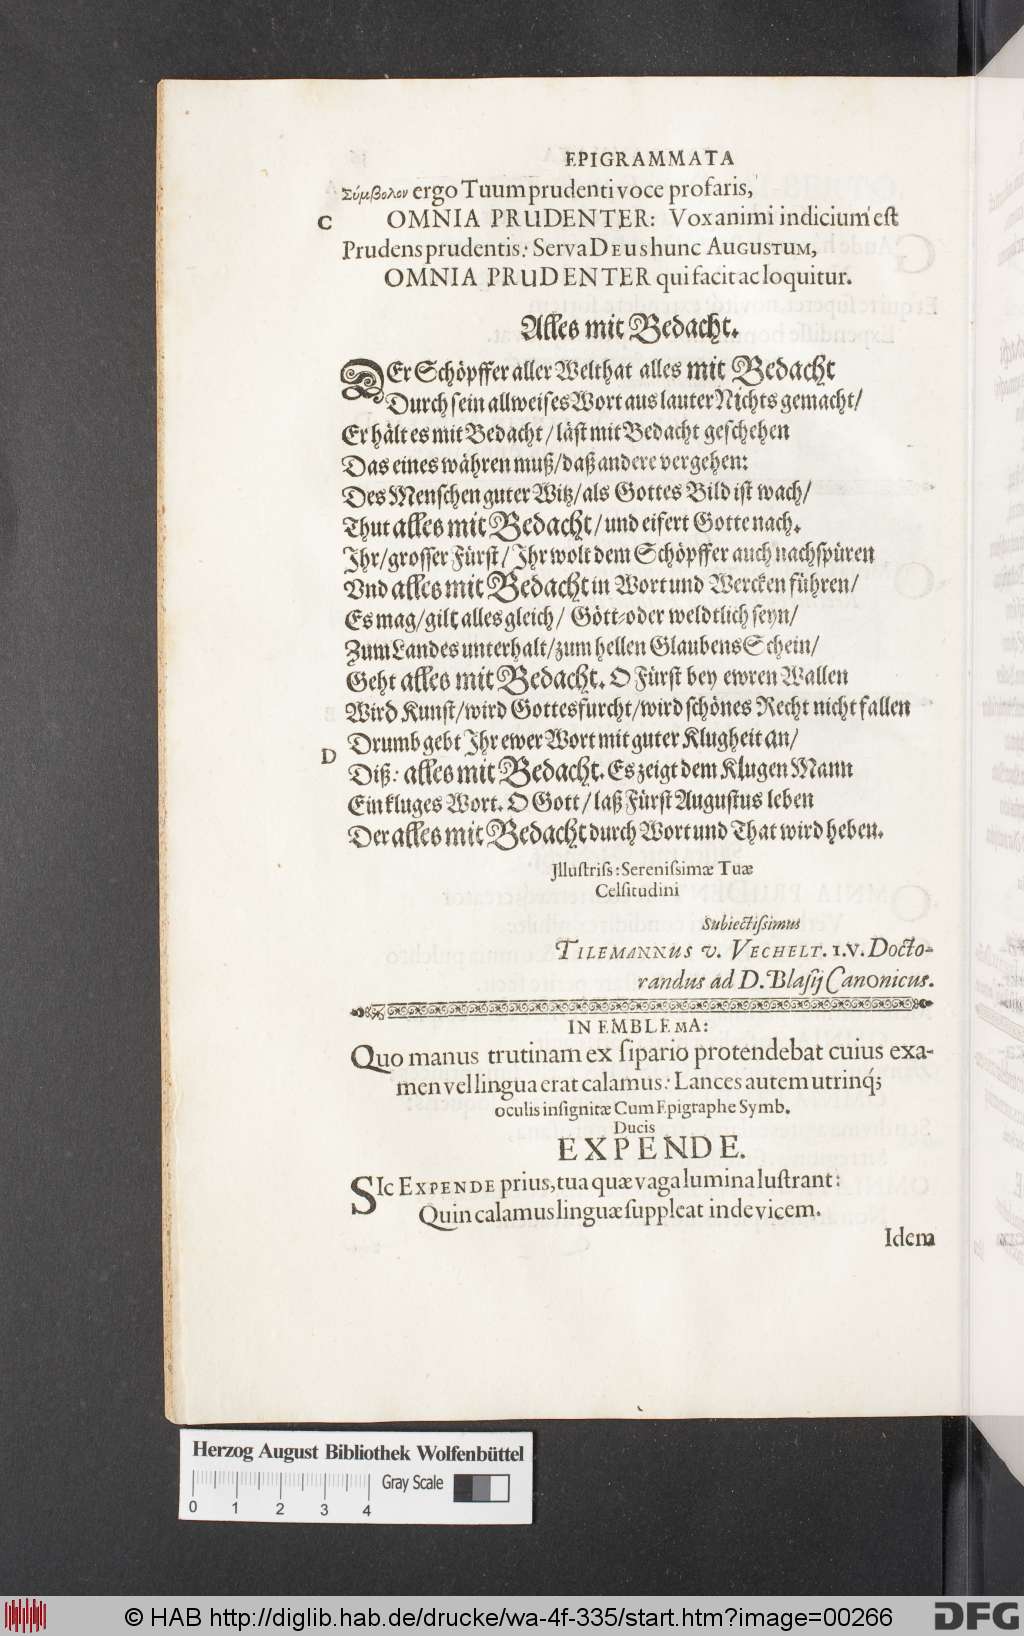 EPIGRAMMATA
Σύμβολον ergo Tuum prudenti voce profaris,
C
OMNIA PRUDENTER: Vox animi indicium est
Prudens prudentis: Serva DEus hunc AUGUSTUM,
OMNIA PRUDENTER qui facit ac loquitur.
Alles mit Bedacht.
DEr Schöpffer aller Welt hat alles mit Bedacht
Durch sein allweises Wort aus lauter Nichts gemacht/
Er hält es mit Bedacht/ läst mit Bedacht geschehen
Das eines währen muß/ daß andere vergehen:
Des Menschen guter Witz/ als Gottes Bild ist wach/
Thut alles mit Bedacht/ und eifert Gotte nach.
Jhr/ grosser Fürst/ Jhr wolt dem Schöpffer auch nachspüren
Vnd alles mit Bedacht in Wort und Wercken führen/
Es mag/ gilt alles gleich/ Gött- oder weldtlich seyn/
Zum Landes unterhalt/ zum hellen Glaubens Schein/
Geht alles mit Bedacht. O Fürst bey ewren Wallen
Wird Kunst/ wird Gottesfurcht/ wird schönes Recht nicht fallen
Drumb gebt Jhr ewer Wort mit guter Klugheit an/
D
Diß: alles mit Bedacht. Es zeigt dem Klugen Mann
Ein kluges Wort. O Gott/ laß Fürst Augustus leben
Der alles mit Bedacht durch Wort und That wird heben.
Jllustriss: Serenissimæ Tuæ
Celsitudini
Subiectissimus
TILEMANNUS v. VECHELT. I.V. Docto-
randus ad D. Blasij Canonicus.
IN EMBLEMA:
Quo manus trutinam ex sipario protendebat cuius exa-
men vel lingua erat calamus: Lances autem utrinq́;
oculis insignitæ Cum Epigraphe Symb.
Ducis
EXPENDE.
SIc EXPENDE prius, tua quæ vaga lumina lustrant:
Quin calamus linguæ suppleat inde vicem.
Idem
Herzog August Bibliothek Wolfenbüttel
Gray Scale
0 1 2 3 4
© HAB http://diglib.hab.de/drucke/wa-4f-335/start.htm?image=00266
DFG